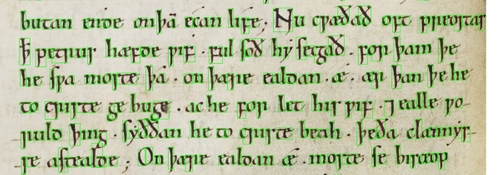 butan ende on þā ecan life · Nu cƿæðað oft preostas
ꝥ petrus hæfde ƿif · ful soð hy secgað · for þam þe
he sƿa moste þa · on þære ealdan · æ · ær þan þe he
to criste ge buge · ac he for let his ƿif · ⁊ ealle ƿo-
ruld þing · syððan he to criste beah · þe ða clænnys-
se astealde ; On þære ealdan æ · moste se bisceop